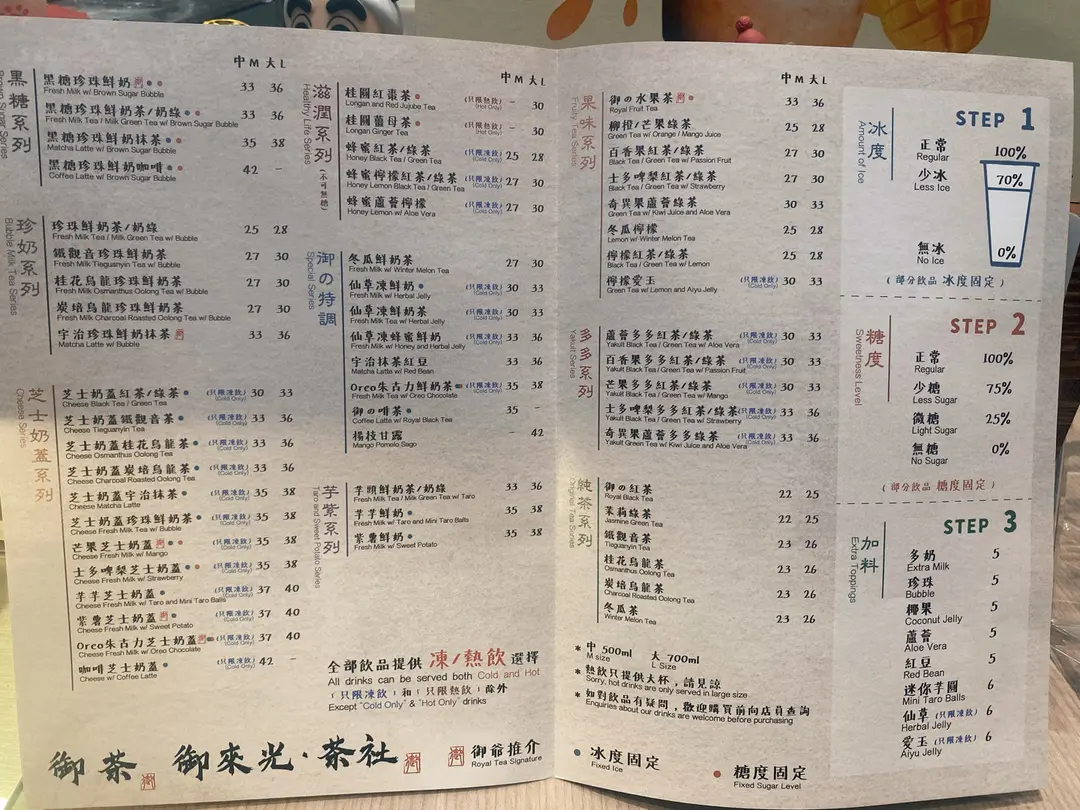 黑糖系列
Brown Sugar Series
中M 大L
黑糖珍珠鮮奶 33 36
Fresh Milk w/ Brown Sugar Bubble
黑糖珍珠鮮奶茶/奶綠 33 36
Fresh Milk Tea / Milk Green Tea w/ Brown Sugar Bubble
黑糖珍珠鮮奶抹茶 35 38
Matcha Latte w/ Brown Sugar Bubble
黑糖珍珠鮮奶咖啡 42 -
Coffee Latte w/ Brown Sugar Bubble
珍奶系列
Bubble Milk Tea Series
珍珠鮮奶茶/奶綠 25 28
Fresh Milk Tea / Milk Green Tea w/ Bubble
鐵觀音珍珠鮮奶茶 27 30
Fresh Milk Tieguanyin Tea w/ Bubble
桂花烏龍珍珠鮮奶茶 27 30
Fresh Milk Osmanthus Oolong Tea w/ Bubble
炭焙烏龍珍珠鮮奶茶 27 30
Fresh Milk Charcoal Roasted Oolong Tea w/ Bubble
宇治珍珠鮮奶抹茶 33 36
Matcha Latte w/ Bubble
芝士奶蓋系列
Cheese Series
芝士奶蓋紅茶/綠茶 (只限凍飲) 30 33
Cheese Black Tea / Green Tea (Cold Only)
芝士奶蓋鐵觀音茶 (只限凍飲) 33 36
Cheese Tieguanyin Tea (Cold Only)
芝士奶蓋桂花烏龍茶 (只限凍飲) 33 36
Cheese Osmanthus Oolong Tea (Cold Only)
芝士奶蓋炭焙烏龍茶 (只限凍飲) 33 36
Cheese Charcoal Roasted Oolong Tea (Cold Only)
芝士奶蓋宇治抹茶 (只限凍飲) 35 38
Cheese Matcha Latte (Cold Only)
芝士奶蓋珍珠鮮奶茶 (只限凍飲) 35 38
Cheese Fresh Milk Tea w/ Bubble (Cold Only)
芒果芝士奶蓋 (只限凍飲) 35 38
Cheese Fresh Milk w/ Mango (Cold Only)
士多啤梨芝士奶蓋 (只限凍飲) 35 38
Cheese Fresh Milk w/ Strawberry (Cold Only)
芋芋芝士奶蓋 (只限凍飲) 37 40
Cheese Fresh Milk w/ Taro and Mini Taro Balls (Cold Only)
紫薯芝士奶蓋 (只限凍飲) 37 40
Cheese Fresh Milk w/ Sweet Potato (Cold Only)
Oreo朱古力芝士奶蓋 (只限凍飲) 37 40
Cheese Fresh Milk w/ Oreo Chocolate (Cold Only)
咖啡芝士奶蓋 (只限凍飲) 42 -
Cheese w/ Coffee Latte (Cold Only)
滋潤系列(不可無糖)
Healthy Life Series
中M 大L
桂圓紅棗茶 (只限熱飲) - 30
Longan and Red Jujube Tea (Hot Only)
桂圓薑母茶 (只限熱飲) - 30
Longan Ginger Tea (Hot Only)
蜂蜜紅茶/綠茶 (只限凍飲) 25 28
Honey Black Tea / Green Tea (Cold Only)
蜂蜜檸檬紅茶/綠茶 (只限凍飲) 27 30
Honey Lemon Black Tea / Green Tea (Cold Only)
蜂蜜蘆薈檸檬 (只限凍飲) 27 30
Honey Lemon w/ Aloe Vera (Cold Only)
御の特調
Special Series
冬瓜鮮奶 27 30
Fresh Milk w/ Winter Melon Tea
仙草凍鮮奶 (只限凍飲) 30 33
Fresh Milk w/ Herbal Jelly (Cold Only)
仙草凍鮮奶茶 (只限凍飲) 30 33
Fresh Milk Tea w/ Herbal Jelly (Cold Only)
仙草凍蜂蜜鮮奶 (只限凍飲) 33 36
Fresh Milk w/ Honey and Herbal Jelly (Cold Only)
宇治抹茶紅豆 33 36
Matcha Latte w/ Red Bean
Oreo朱古力鮮奶茶 (只限凍飲) 35 38
Fresh Milk Tea w/ Oreo Chocolate (Cold Only)
御の啡茶 35 -
Coffee Latte w/ Royal Black Tea
楊枝甘露 42
Mango Pomelo Sago
芋紫系列
Taro and Sweet Potato Series
芋頭鮮奶茶/奶綠 33 36
Fresh Milk Tea / Milk Green Tea w/ Taro
芋芋鮮奶 35 38
Fresh Milk w/ Taro and Mini Taro Balls
紫薯鮮奶 35 38
Fresh Milk w/ Sweet Potato
全部飲品提供 凍/熱飲 選擇
All drinks can be served both Cold and Hot
「只限凍飲」和「只限熱飲」除外
Except "Cold Only" & "Hot Only" drinks
御茶 御來光·茶社
御爺推介
Royal Tea Signature
果味系列
Fruity Tea Series
中M 大L
御の水果茶 33 36
Royal Fruit Tea
柳橙/芒果綠茶 25 28
Green Tea w/ Orange / Mango Juice
百香果紅茶/綠茶 27 30
Black Tea / Green Tea w/ Passion Fruit
士多啤梨紅茶/綠茶 27 30
Black Tea / Green Tea w/ Strawberry
奇異果蘆薈綠茶 30 33
Green Tea w/ Kiwi Juice and Aloe Vera
冬瓜檸檬 25 28
Lemon w/ Winter Melon Tea
檸檬紅茶/綠茶 25 28
Black Tea / Green Tea w/ Lemon
檸檬愛玉 (只限凍飲) 30 33
Green Tea w/ Lemon and Aiyu Jelly (Cold Only)
多多系列
Yakult Series
蘆薈多多紅茶/綠茶 (只限凍飲) 30 33
Yakult Black Tea / Green Tea w/ Aloe Vera (Cold Only)
百香果多多紅茶/綠茶 (只限凍飲) 30 33
Yakult Black Tea / Green Tea w/ Passion Fruit (Cold Only)
芒果多多紅茶/綠茶 (只限凍飲) 30 33
Yakult Black Tea / Green Tea w/ Mango (Cold Only)
士多啤梨多多紅茶/綠茶 (只限凍飲) 33 36
Yakult Black Tea / Green Tea w/ Strawberry (Cold Only)
奇異果蘆薈多多綠茶 (只限凍飲) 33 36
Yakult Green Tea w/ Kiwi Juice and Aloe Vera (Cold Only)
純茶系列
Original Tea Series
御の紅茶 22 25
Royal Black Tea
茉莉綠茶 22 25
Jasmine Green Tea
鐵觀音茶 23 26
Tieguanyin Tea
桂花烏龍茶 23 26
Osmanthus Oolong Tea
炭焙烏龍茶 23 26
Charcoal Roasted Oolong Tea
冬瓜茶 23 26
Winter Melon Tea
* 中 500ml 大 700ml
M size L Size
* 熱飲只提供大杯,請見諒
Sorry, hot drinks are only served in large size
* 如對飲品有疑問,歡迎購買前向店員查詢
Enquiries about our drinks are welcome before purchasing
冰度固定
Fixed Ice
糖度固定
Fixed Sugar Level
冰度
Amount of Ice
STEP 1
正常 100%
Regular
少冰 70%
Less Ice
無冰 0%
No Ice
(部分飲品 冰度固定)
糖度
Sweetness Level
STEP 2
正常 100%
Regular
少糖 75%
Less Sugar
微糖 25%
Light Sugar
無糖 0%
No Sugar
(部分飲品 糖度固定)
加料
Extra Toppings
STEP 3
多奶 5
Extra Milk
珍珠 5
Bubble
椰果 5
Coconut Jelly
蘆薈 5
Aloe Vera
紅豆 5
Red Bean
迷你芋圓 6
Mini Taro Balls
仙草 (只限凍飲) 6
Herbal Jelly
愛玉 (只限凍飲) 6
Aiyu Jelly